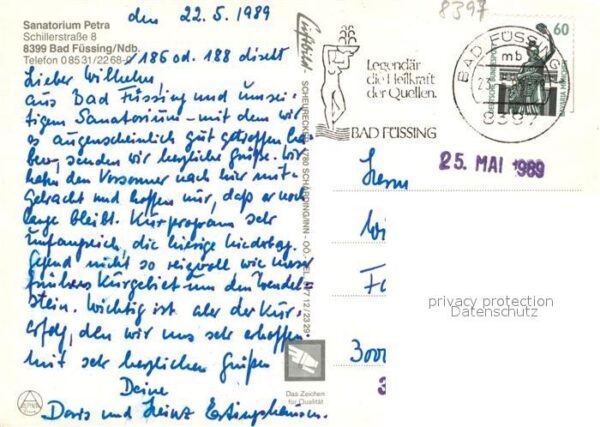 den 22.5.1989
8397
Sanatorium Petra
Schillerstraße 8
8399 Bad Füssing/Ndb.
Telefon 08531/2268-0
186 od. 188 direkt
Lieber Wilhelm,
aus Bad Füssing und unsei-
tigem Sanatorium - mit dem wir
es augenscheinlich gut getroffen ha-
ben, senden wir herzliche Grüße. Wir
haben den Vorsommer nach hier mit-
gebracht und hoffen nur, daß er noch
lange bleibt. Kurprogramm sehr
umfangreich, die hiesige niederbay.
Gegend nicht so reizvoll wie unser
früheres Kurgebiet um den Wendel-
stein. Wichtig ist aber der Kur-
erfolg, den wir uns sehr erhoffen
mit sehr herzlichen Grüßen
Deine
Doris und Heinz
Luftbild
SCHEURECKER 4780 SCHÄRDING/INN - OÖ.
7712/23 29
Das Zeichen
für Qualität
Legendär
die Heilkraft
der Quellen.
BAD FÜSSING
BAD FÜSSING
mb
23.
8397
60
DEUTSCHE BUNDESPOST
BAVARIA MÜNCHEN
25. MAI 1989
Herrn
Wi
300
3
privacy protection
Datenschutz